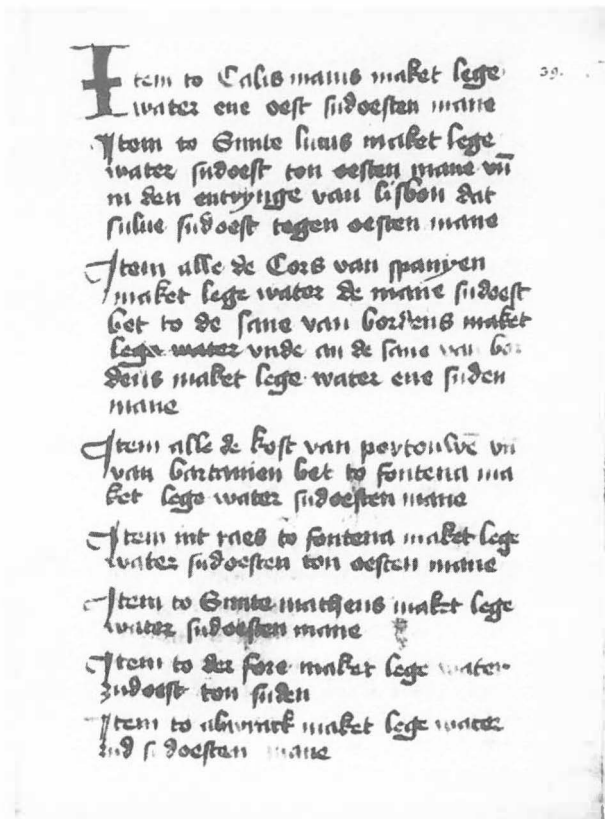 Item to Calis maliis maket lege 39.
water ene oest sudoesten mane
Item to Sunte lucus maket lege
water sudoest ton oesten mane vn̄
in den entrynge van lisbon dat
sulue sudoest tegen oesten mane
Item alle de Cors van spanyen
maket lege water de mane sudoest
bet to de sane van bordeus maket
lege water vnde an de sane van bor
deus maket lege water ene suden
mane
Item alle de kost van poytouwē vn̄
van bartanien bet to fontena ma
ket lege water sudoesten mane
Item int raes to fontena maket lege
water sudoesten ton oesten mane
Item to Sunte matheus maket lege
water sudoesten mane
Item to der fore maket lege water
zudoest ton suden
Item to maket lege water
doesten mane